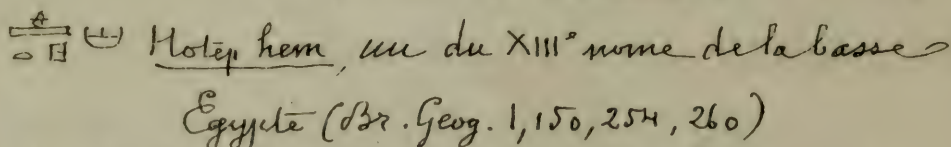 Hotep hem, un du XIII° nome de la basse
Egypte (Br. Geog. 1, 150, 254, 260)